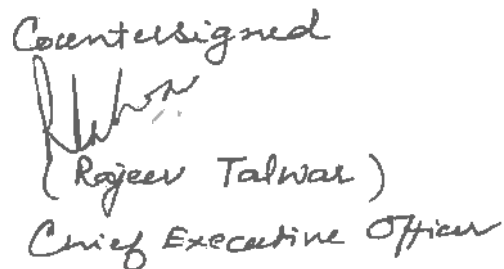 Countersigned
(Rajeev Talwar)
Chief Executive Officer